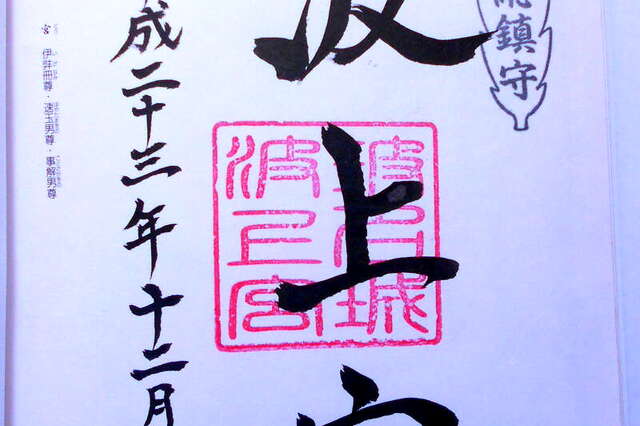 鎮守
波上宮
波上宮
成二十三年十二月
伊弉冊尊・速玉男尊・事解男尊